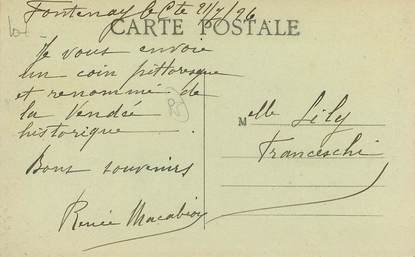 Fontenay le Cte 21/7/26
CARTE POSTALE
Je vous envoie
un coin pittoresque
et renommé de
la Vendée
historique.
Bons souvenirs
Renée
Melle Lily
Franceschi